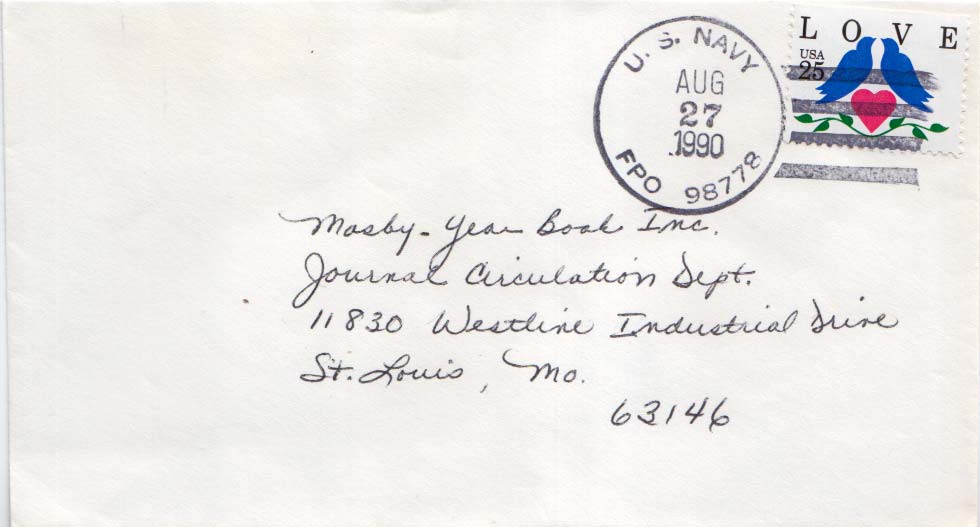 U. S. NAVY
AUG
27
1990
FPO 98778
LOVE
USA
25
Mosby-Year Book Inc.
Journal Circulation Dept.
11830 Westline Industrial Drive
St. Louis, Mo.
63146